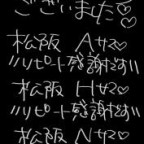 ございました♡
松阪 Aサマ♡
"リピート感謝です"
松阪 Hサマ♡
"リピート感謝です"
松阪 Nサマ♡